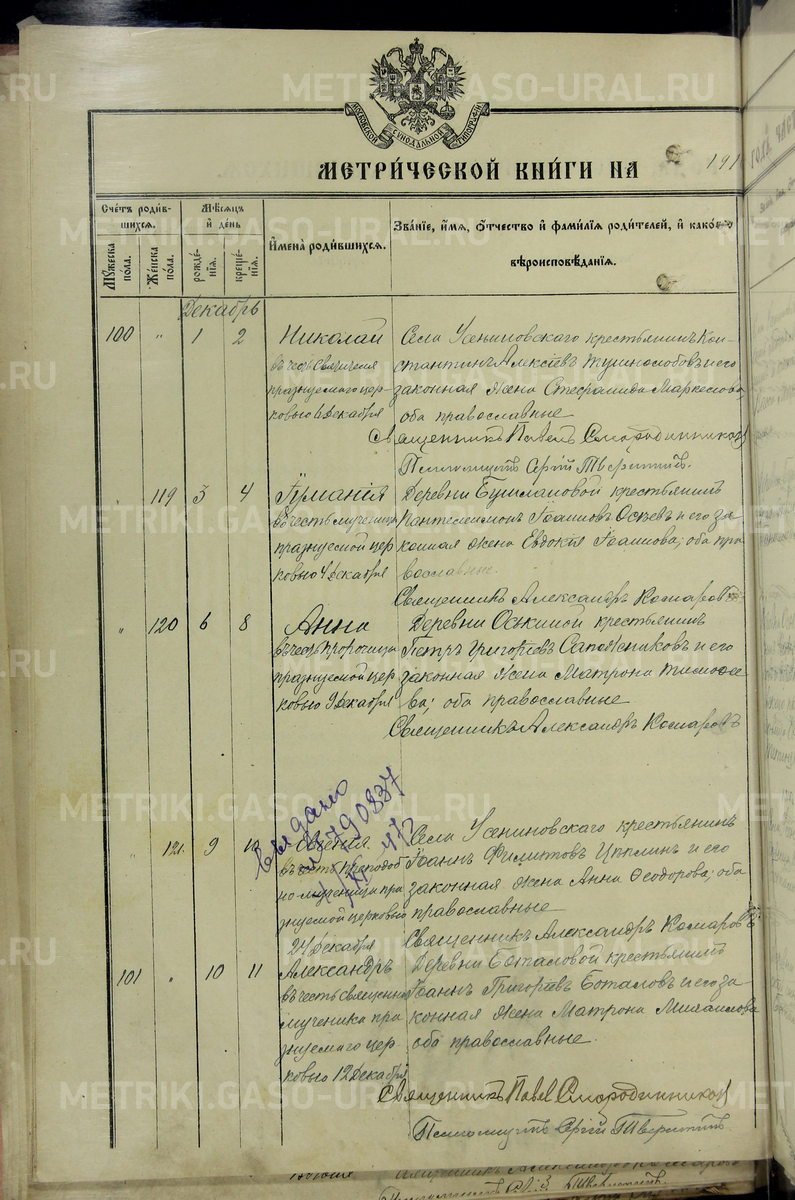 METRIKI.GASO-URAL.RU
МОСКОВСКОЙ СѴНОДАЛЬНОЙ ТИПОГРАФІИ
МЕТРИ́ЧЕСКОЙ КНИ́ГИ НА 191
Сче́тъ роди́в-
шихся.
Му́жеска по́ла.
Же́нска по́ла.
Мѣ́сяцъ и де́нь
рожде́-
нія.
креще́-
нія.
Имена̀ роди́вшихся.
Зва́ніе, и́мя, о́тчество и фами́лія роди́телей, и како́го
вѣроисповѣ́данія.
Декабрь
100 " 1 2 Николай
въ честь Святителя
празднуемаго цер-
ковью 6 Декабря
Села Усениновскаго крестьянинъ Кон-
стантинъ Алексѣевъ и его
законная жена Стефанида
оба православные
Священникъ Павелъ Смородинниковъ
Псаломщикъ Сергій
" 119 3 4
въ честь мученицы
празднуемой цер
ковью 4 Декабря
Деревни крестьянинъ
Пантелеимонъ Іоанновъ и его за
конная жена Евдокія Іоаннова; оба пра
вославные.
Священникъ Александръ Комаровъ
" 120 6 8 Анна
въ честь пророчицы
празднуемой цер
ковью 9 Декабря
Деревни Оськиной крестьянинъ
Петръ Григорьевъ Сапожниковъ и его
законная жена Матрона Тимоѳе
ва; оба православные
Священникъ Александръ Комаровъ
выдано
790837
" 121 9 Евгенія
въ честь преподоб
но-мученицы пра
зднуемой церковью
24 Декабря
Села Усениновскаго крестьянинъ
Іоаннъ Филипповъ и его
законная жена Анна Ѳеодорова; оба
православные
Священникъ Александръ Комаровъ
101 " 10 11 Александръ
въ честь священно
мученика пра
зднуемаго цер
ковью 12 Декабря
Деревни Боталовой крестьянинъ
Іоаннъ Григорьевъ Боталовъ и его за
конная жена Матрона Михаилова
оба православные.
Священникъ Павелъ Смородинниковъ
Псаломщикъ Сергій